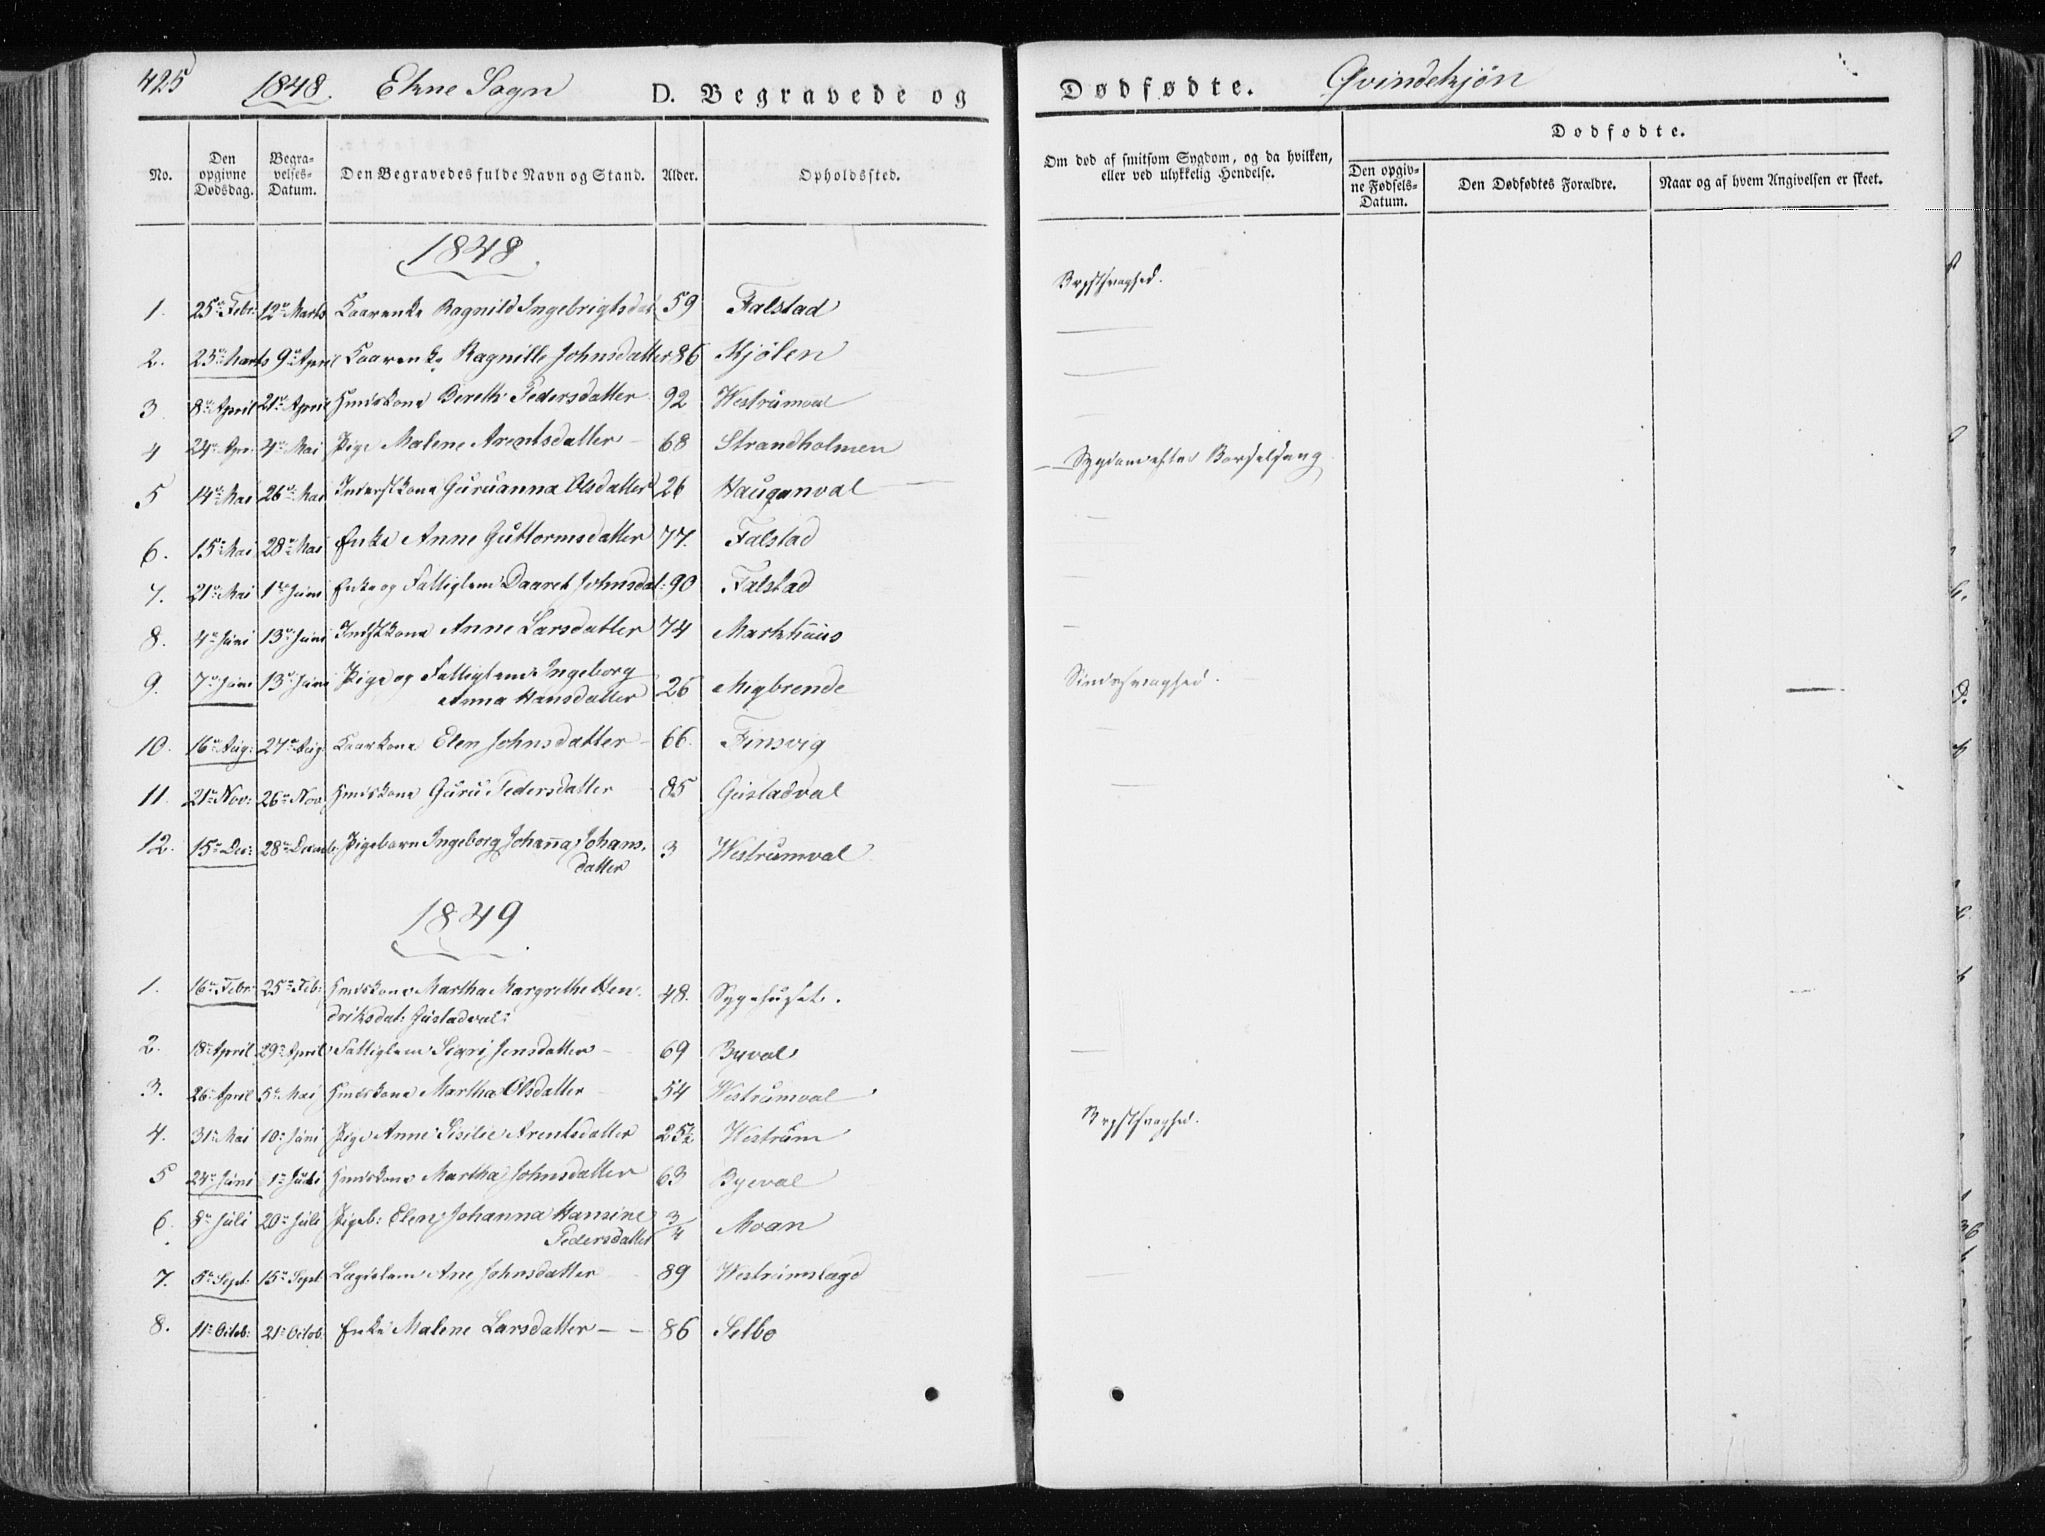 425 1848. Ekne Sogn D. Begravede og Dødfødte. Qvindekjön
No. Den opgivne Dødsdag. Begravelses-Datum. Den Begravedes fulde Navn og Stand. Alder. Opholdssted. Om død af smitsom Sygdom, og da hvilken, eller ved ulykkelig Hendelse. Dødfødte.
Den opgivne Fødsels-Datum. Den Dødfødtes Forældre. Naar og af hvem Angivelsen er skeet.
1848.
1. 25de Febr: 12te Marts Kaarenke Ragnild Ingebrigtsdat 59 Falstad Brystsvaghed.
2. 23de Marts 9de April Kaarenke Ragnille Johnsdatter 86 Kjölen
3 8de April 21de April Huuskone Bereth Pedersdatter 92 Westrumval
4 24de Apr. 4de Mai Pige Malene Arentsdatter 68 Strandholmen
5 14de Mai 26de Mai Inderstkone Guruanna Olsdatter 26 Hauganval Sygdom efter Barselseng
6. 15de Mai 28de Mai Enke Anne Guttormsdatter 77. Falstad
7. 21de Mai 1te Juni Enke og Fattiglem Daaret Johnsdat: 90 Falstad
8. 4de Juni 13de Juni Indstkone Anne Larsdatter 74 Markhuus
9. 7de Juni 13de Juni Pige og Fattiglem Ingeborg
Anna Hansdatter 26 Migbrende Sindssvaghed.
10. 16de Aug: 27de Aug: Kaarkone Elen Johnsdatter 66. Finsvig
11. 21de Nov: 26de Nov. Huuskone Guru Pedersdatter 85 Gustadval
12. 15de Dec: 28de Decemb: Pigebarn Ingeborg Johanna Johans-
datter 3 Westrumval
1849.
1. 16de Febr: 25de Feb: Huuskone Martha Margrethe Hen-
driksdat: Gustadval: 48. Sygehuset.
2. 18de April 29de April Fattiglem Sigri Jensdatter 69 Byval
3. 26de April 5te Mai Huuskone Martha Olsdatter 54 Westrumval
4. 31te Mai 10de Juni Pige Anne Sisilie Arentsdatter 25½ Westrum Brystsvaghed.
5 24de Juni 1te Juli Huuskone Martha Johnsdatter 63 Byeval
6. 8de Juli 20de Juli Pigeb: Elen Johanna Hansine
Pedersdatter 3/4 Moan
7. 5te Sept: 15de Sept. Lægdlem Ane Johnsdatter 89 Westrumslægd
8. 11te Octob: 21de Octob. Enke Malene Larsdatter 86 Selbo